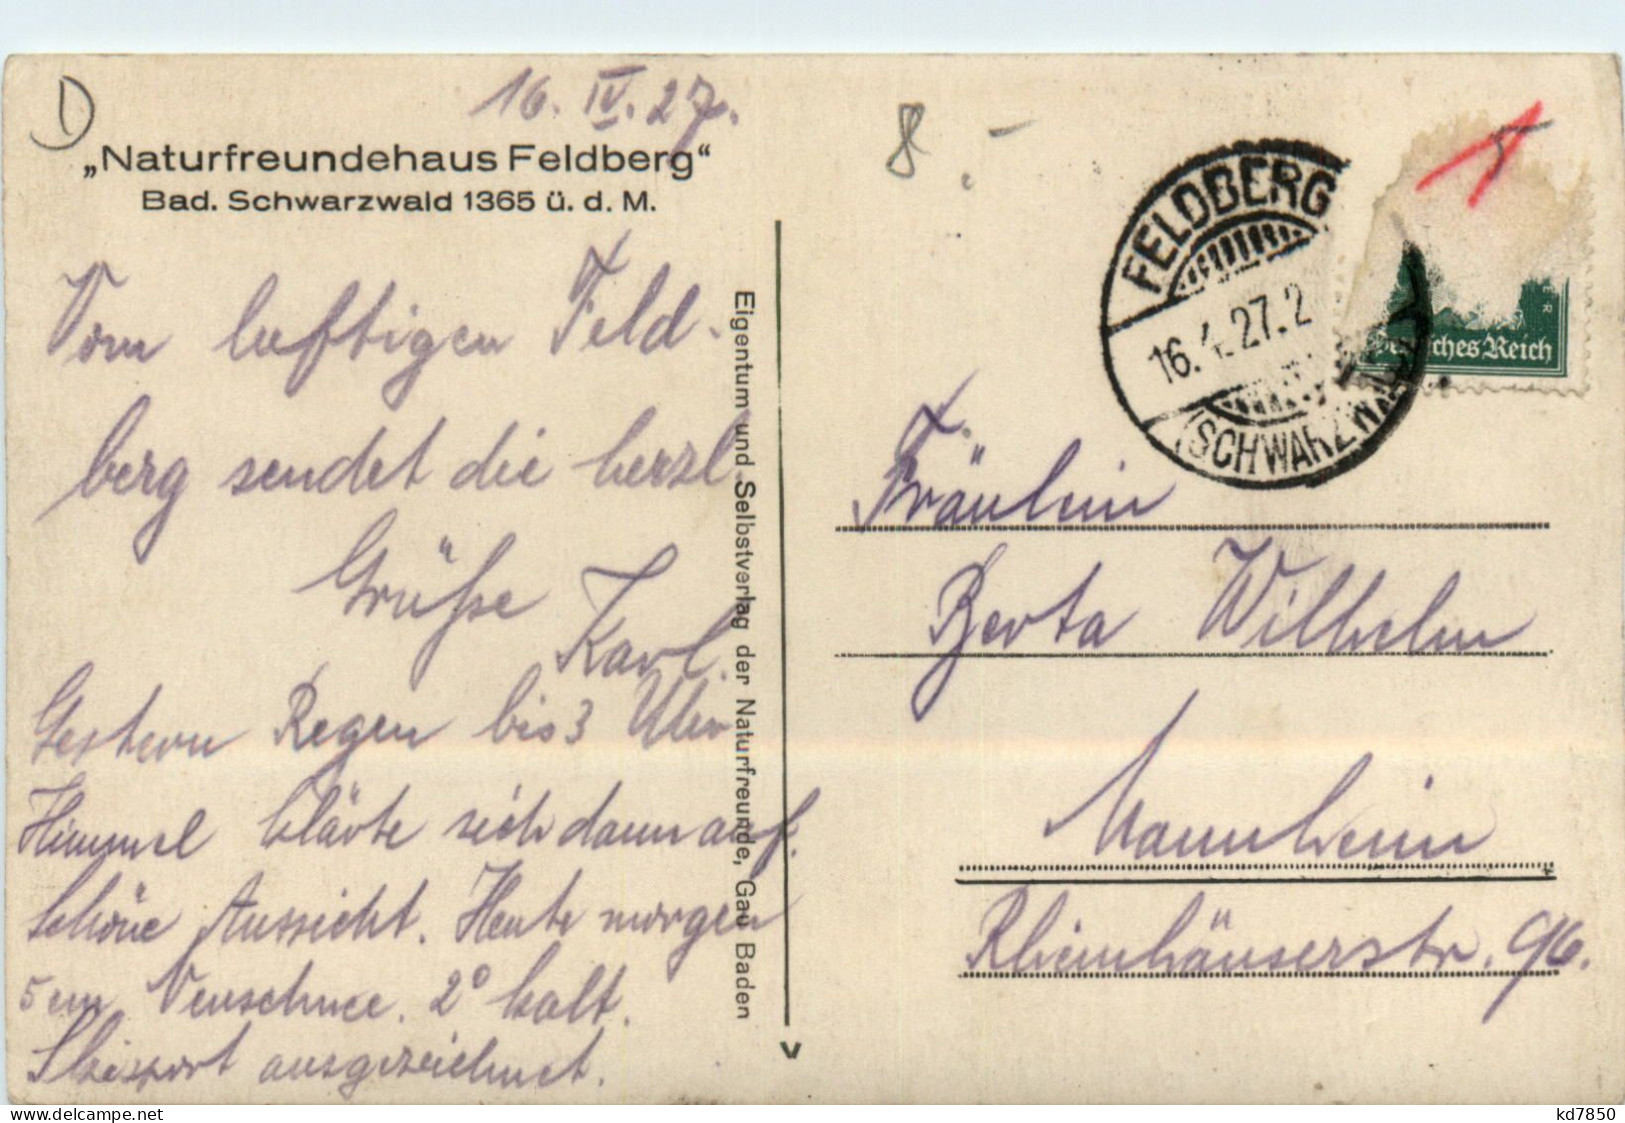 D
16. IV. 27.
„Naturfreundehaus Feldberg“
Bad. Schwarzwald 1365 ü. d. M.
Vom luftigen Feld-
berg sendet die herzl.
Grüße
Karl.
Gestern Regen bis 3 Uhr
Himmel klärte sich dann auf.
Schöne Aussicht. Heute morgen
5 cm Neuschnee. 2° kalt.
Skisport ausgezeichnet.
Eigentum und Selbstverlag der Naturfreunde, Gau Baden
8.-
FELDBERG
16.4.27.2
(SCHWARZWALD)
Deutsches Reich
Fräulein
Berta Wilhelm
Mannheim
Rheinhäuserstr. 96.
www.delcampe.net
kd7850